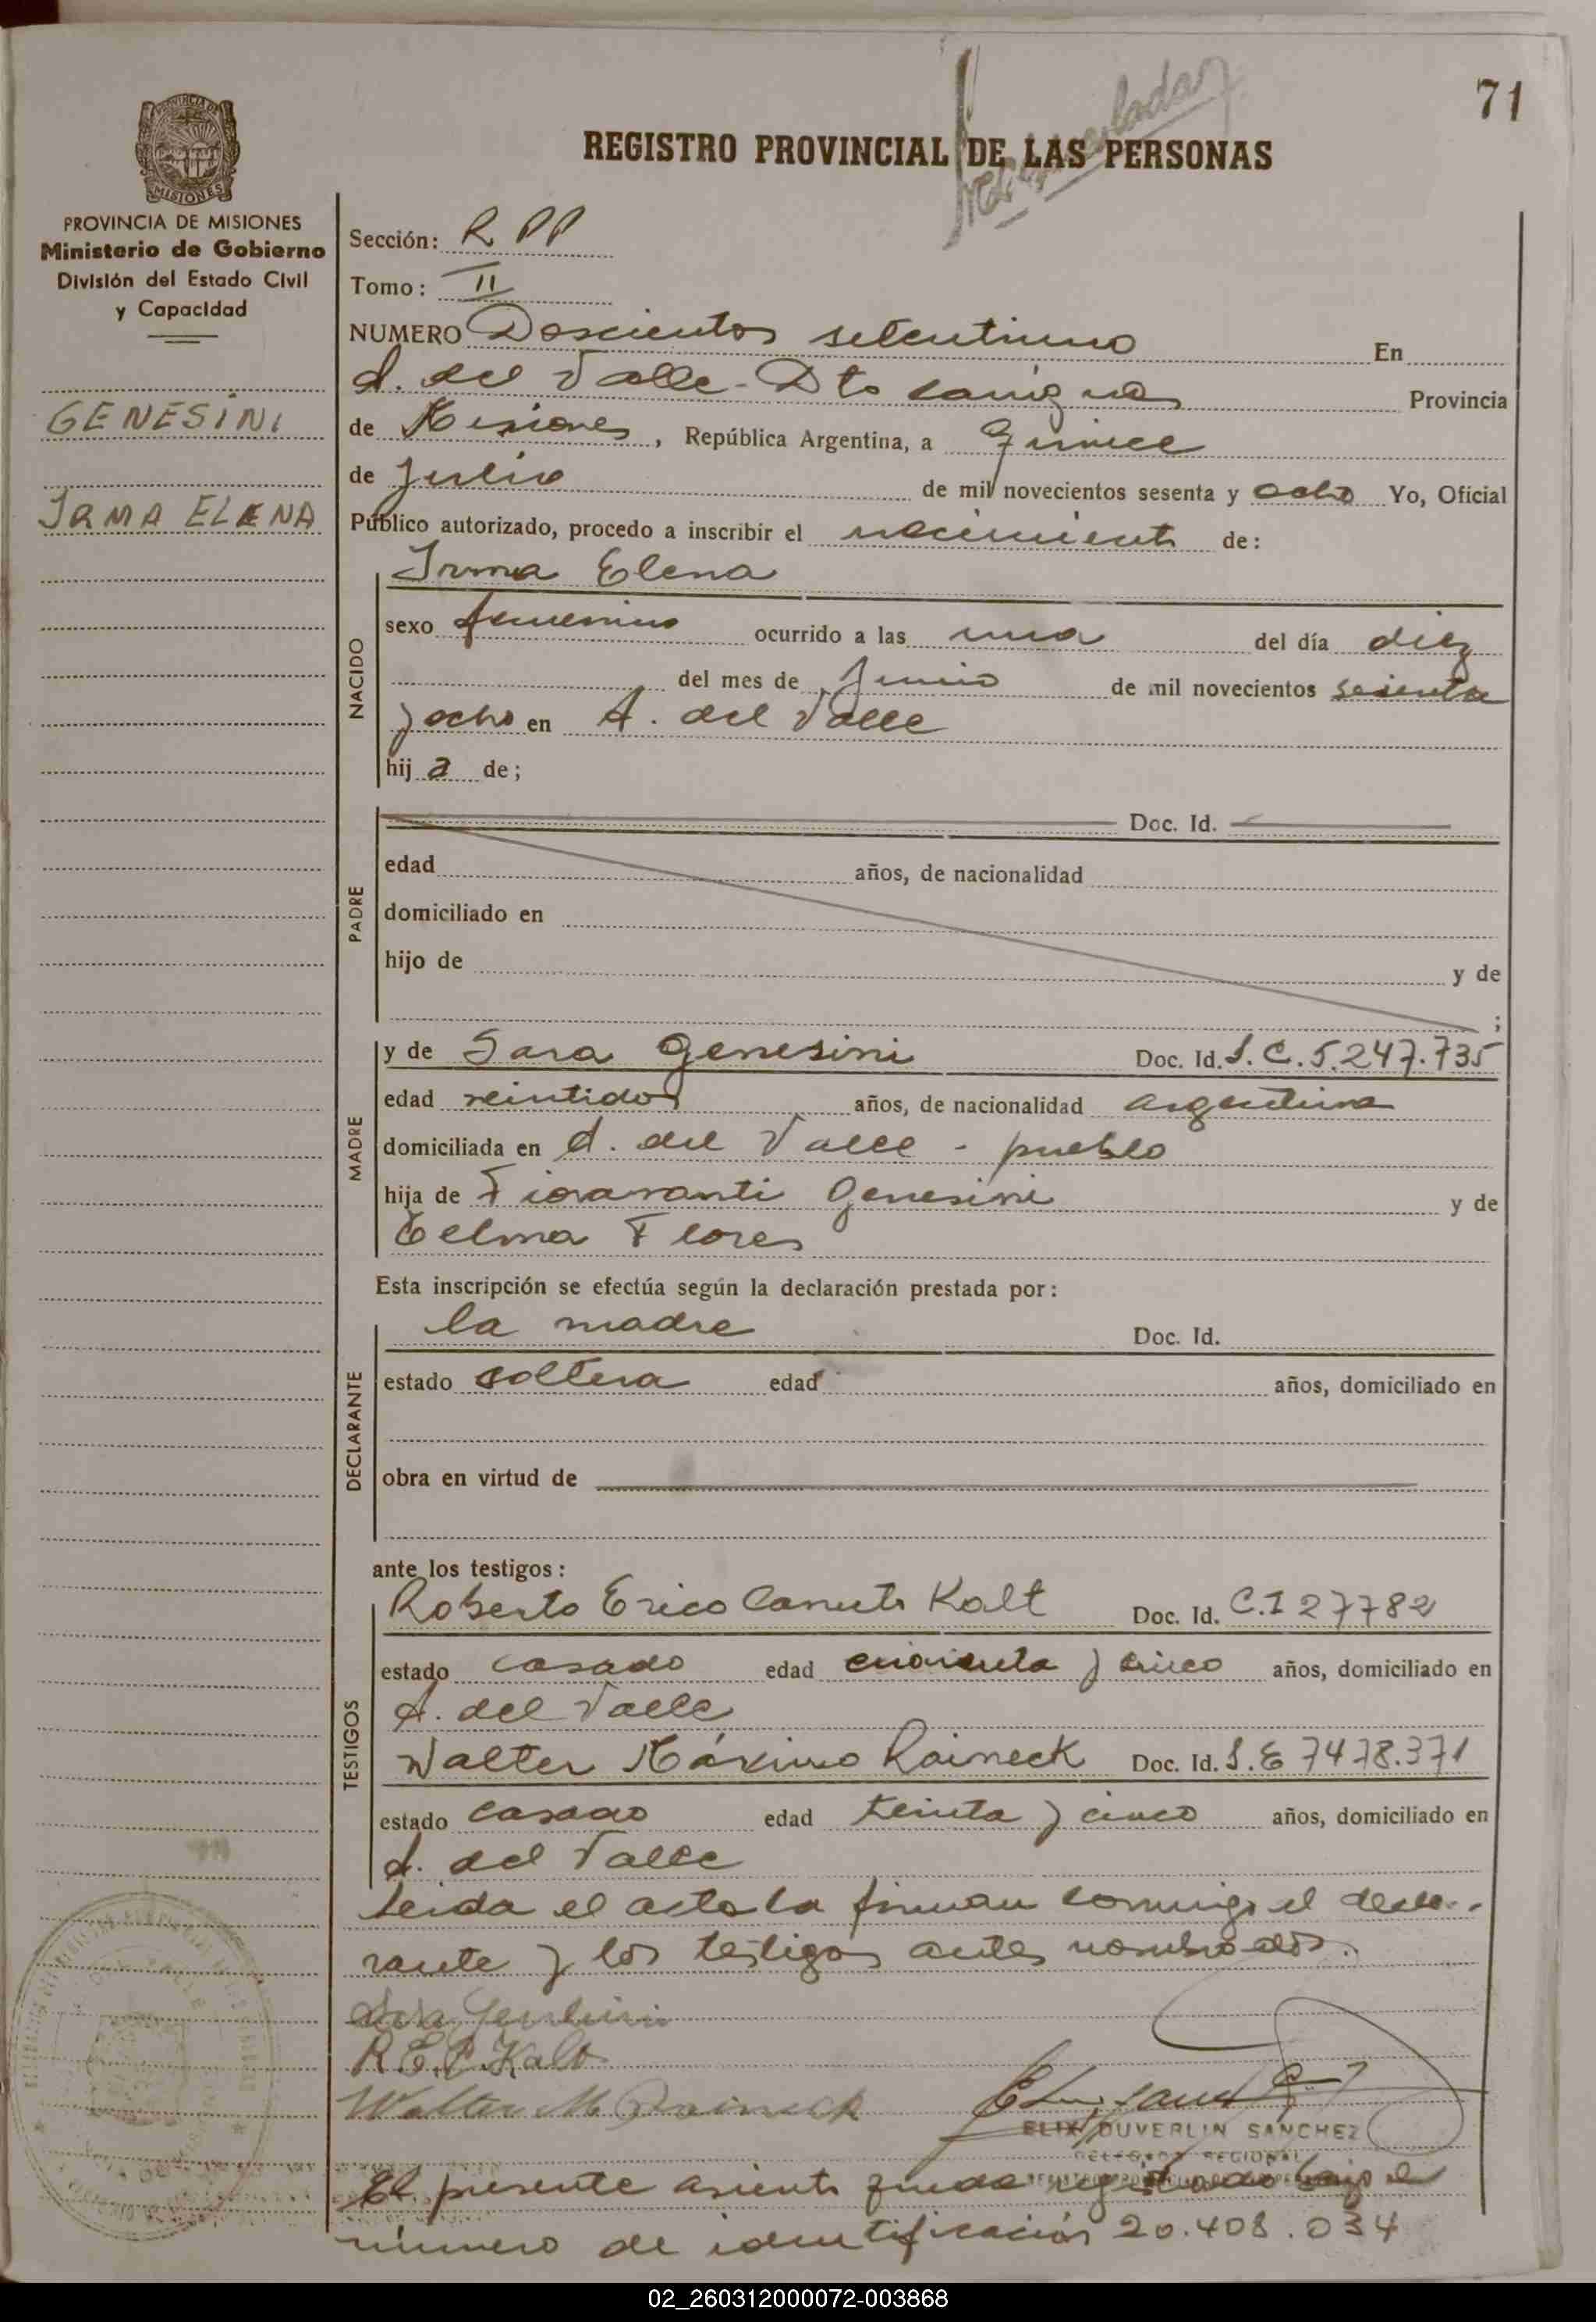 71
REGISTRO PROVINCIAL DE LAS PERSONAS
PROVINCIA DE MISIONES
Ministerio de Gobierno
División del Estado Civil
y Capacidad
GENESINI
IRMA ELENA
Sección: R PP
Tomo: II
NUMERO Doscientos setentiuno En
A. del Valle - Dto Cainguas Provincia
de Misiones, República Argentina, a Quince
de Julio de mil novecientos sesenta y ocho Yo, Oficial
Público autorizado, procedo a inscribir el nacimiento de:
NACIDO
Irma Elena
sexo femenino ocurrido a las una del día diez
del mes de Junio de mil novecientos sesenta
y ocho en A. del Valle
hij a de;
PADRE
Doc. Id.
edad años, de nacionalidad
domiciliado en
hijo de y de
;
MADRE
y de Sara Genesini Doc. Id. L.C. 5.247.735
edad veintidos años, de nacionalidad argentina
domiciliada en A. del Valle - pueblo
hija de Fioravanti Genesini y de
Celma Flores
Esta inscripción se efectúa según la declaración prestada por:
DECLARANTE
la madre Doc. Id.
estado soltera edad años, domiciliado en
obra en virtud de
ante los testigos:
TESTIGOS
Roberto Erico Canuto Kalt Doc. Id. C.I 27782
estado casado edad cuarenta y cinco años, domiciliado en
A. del Valle
Walter Máximo Raineck Doc. Id. L.E 7478.371
estado casado edad treinta y cinco años, domiciliado en
A. del Valle
Leida el acta la firman conmigo el decla-
rante y los testigos antes nombrados.
R.E.C. Kalt
Walter M. Raineck
ELIX DUVERLIN SANCHEZ
DELEGADO REGIONAL
El presente asiento queda registrado bajo el
número de identificación 20.408.034
02_260312000072-003868